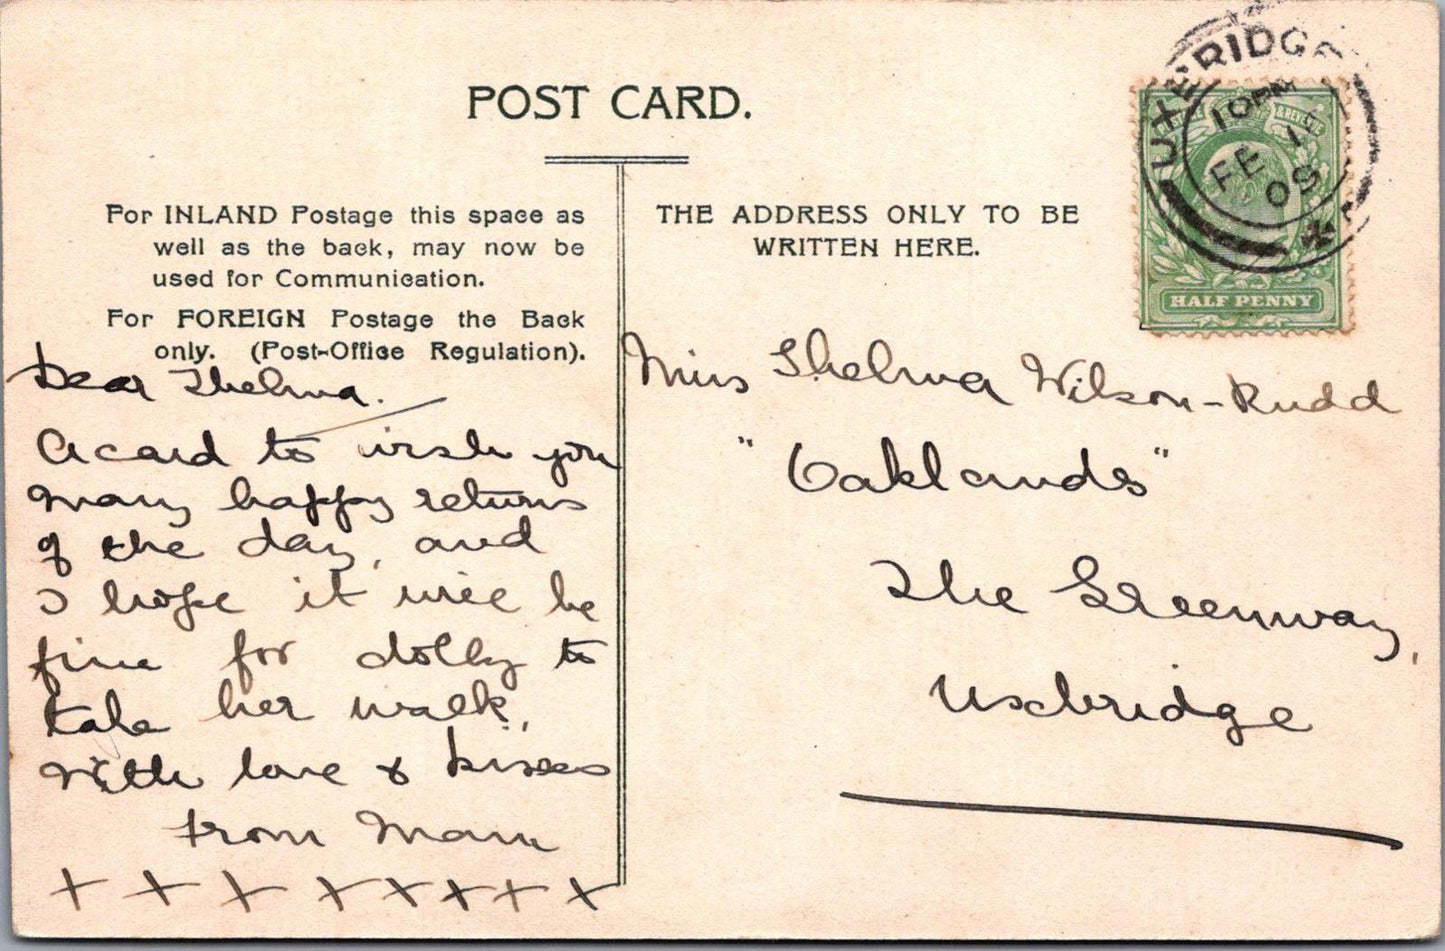 POST CARD.
For INLAND Postage this space as
well as the back, may now be
used for Communication.
For FOREIGN Postage the Back
only. (Post-Office Regulation).
THE ADDRESS ONLY TO BE
WRITTEN HERE.
UXBRIDGE
10 PM
FE
HALF PENNY
Dear Thelma.
A card to wish you
many happy returns
of the day, and
I hope it will be
fine for dolly to
take her walk,
With love & kisses
from
x x x x x x x x
Miss Thelma Wilson-Rudd
"Oaklands"
The Greenway,
Uxbridge